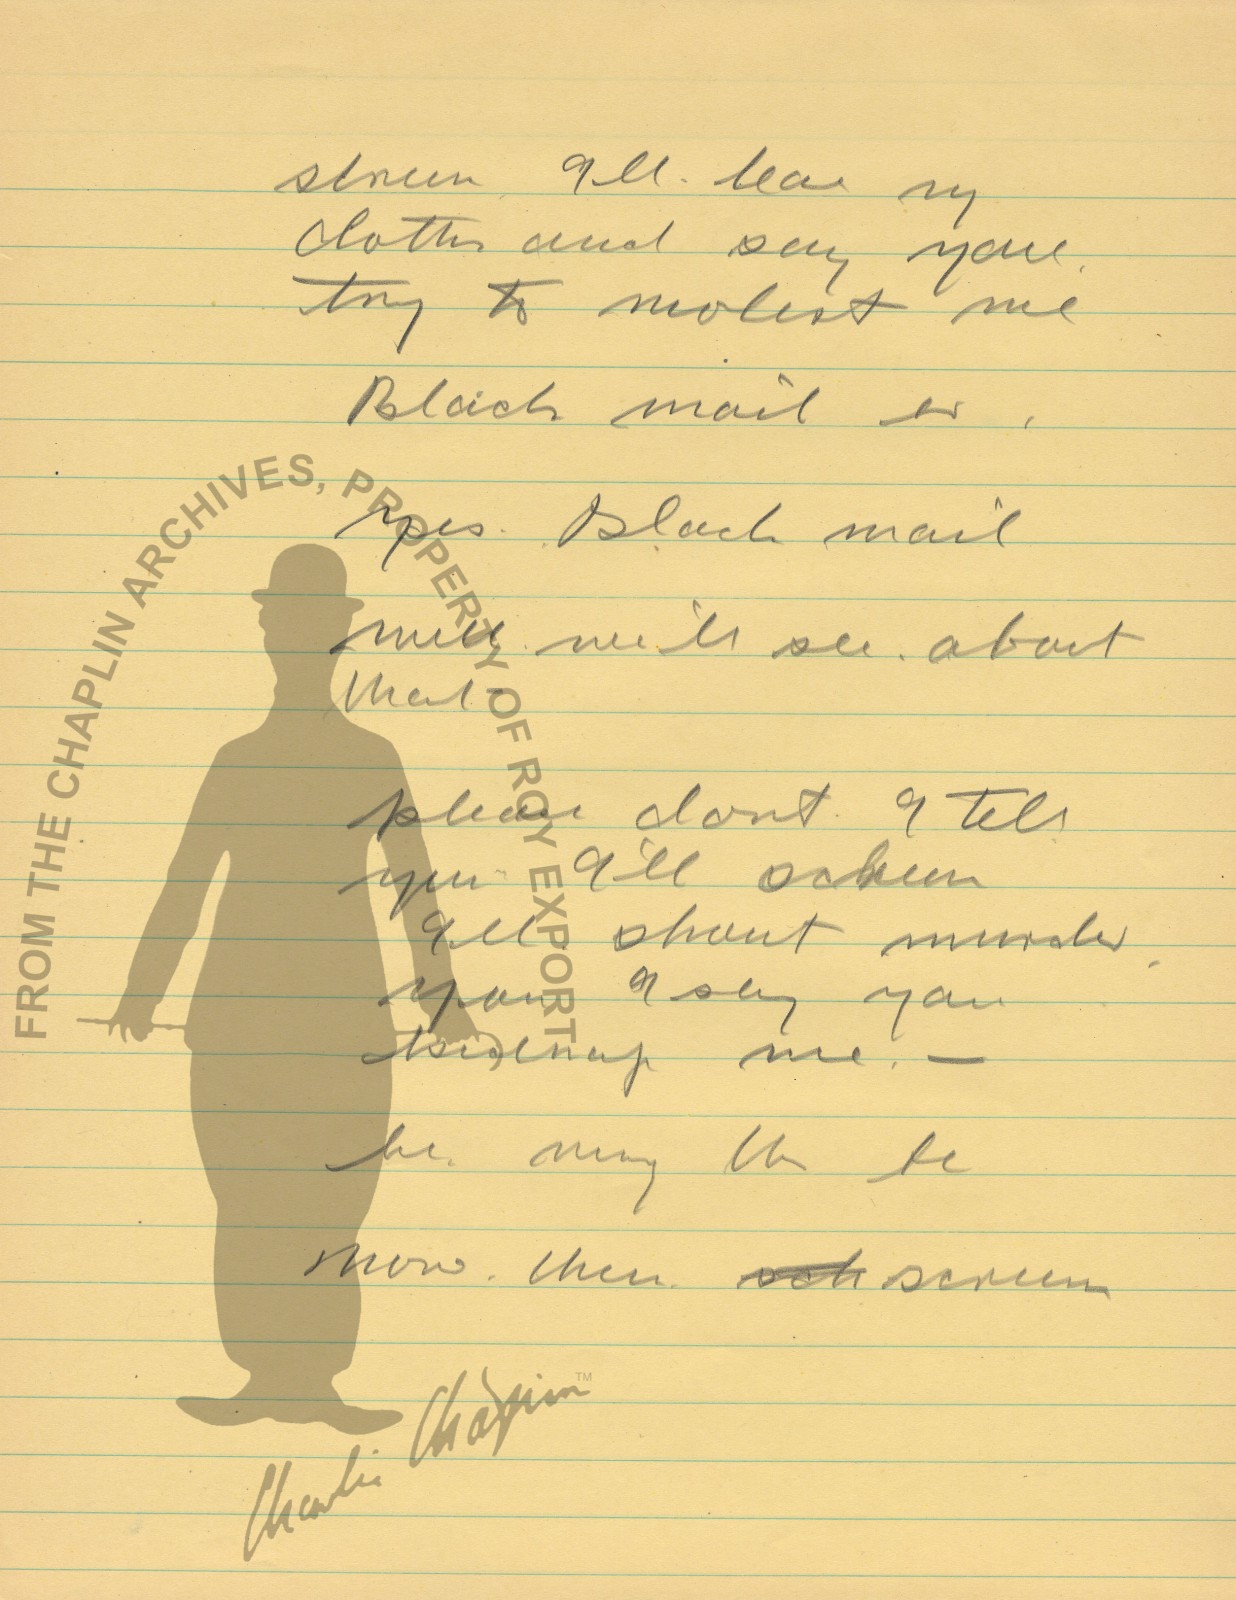 I'll tear my
clothes and say you
try to molest me
Black mail eh,
yes. Black mail
well we'll see. about
that.
please dont. I tell
you I'll
I'll shout murder,
I say you
kidnap me. —
he
now. then. screem
FROM THE CHAPLIN ARCHIVES, PROPERTY OF ROY EXPORT
Charlie Chaplin™